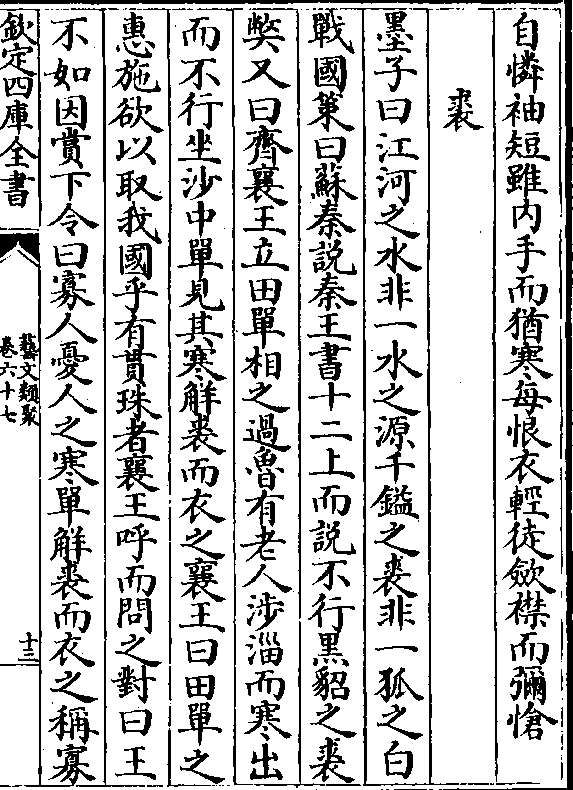 自憐袖短雖内手而猶寒每恨衣輕徒歛襟而彌愴
裘
墨子曰江河之水非一水之源千鎰之裘非一狐之白
戰國䇿曰蘇秦説秦王書十二上而説不行黒貂之裘
獘又曰齊襄王立田單相之過魯有老人渉淄而寒出
而不行坐沙中單見其寒解裘而衣之襄王曰田單之
惠施欲以取我國乎有貫珠者襄王呼而問之對曰王
不如因賞下令曰寡人憂人之寒單解裘而衣之稱寡
欽定四庫全書
藝文類聚
卷六十七
十三